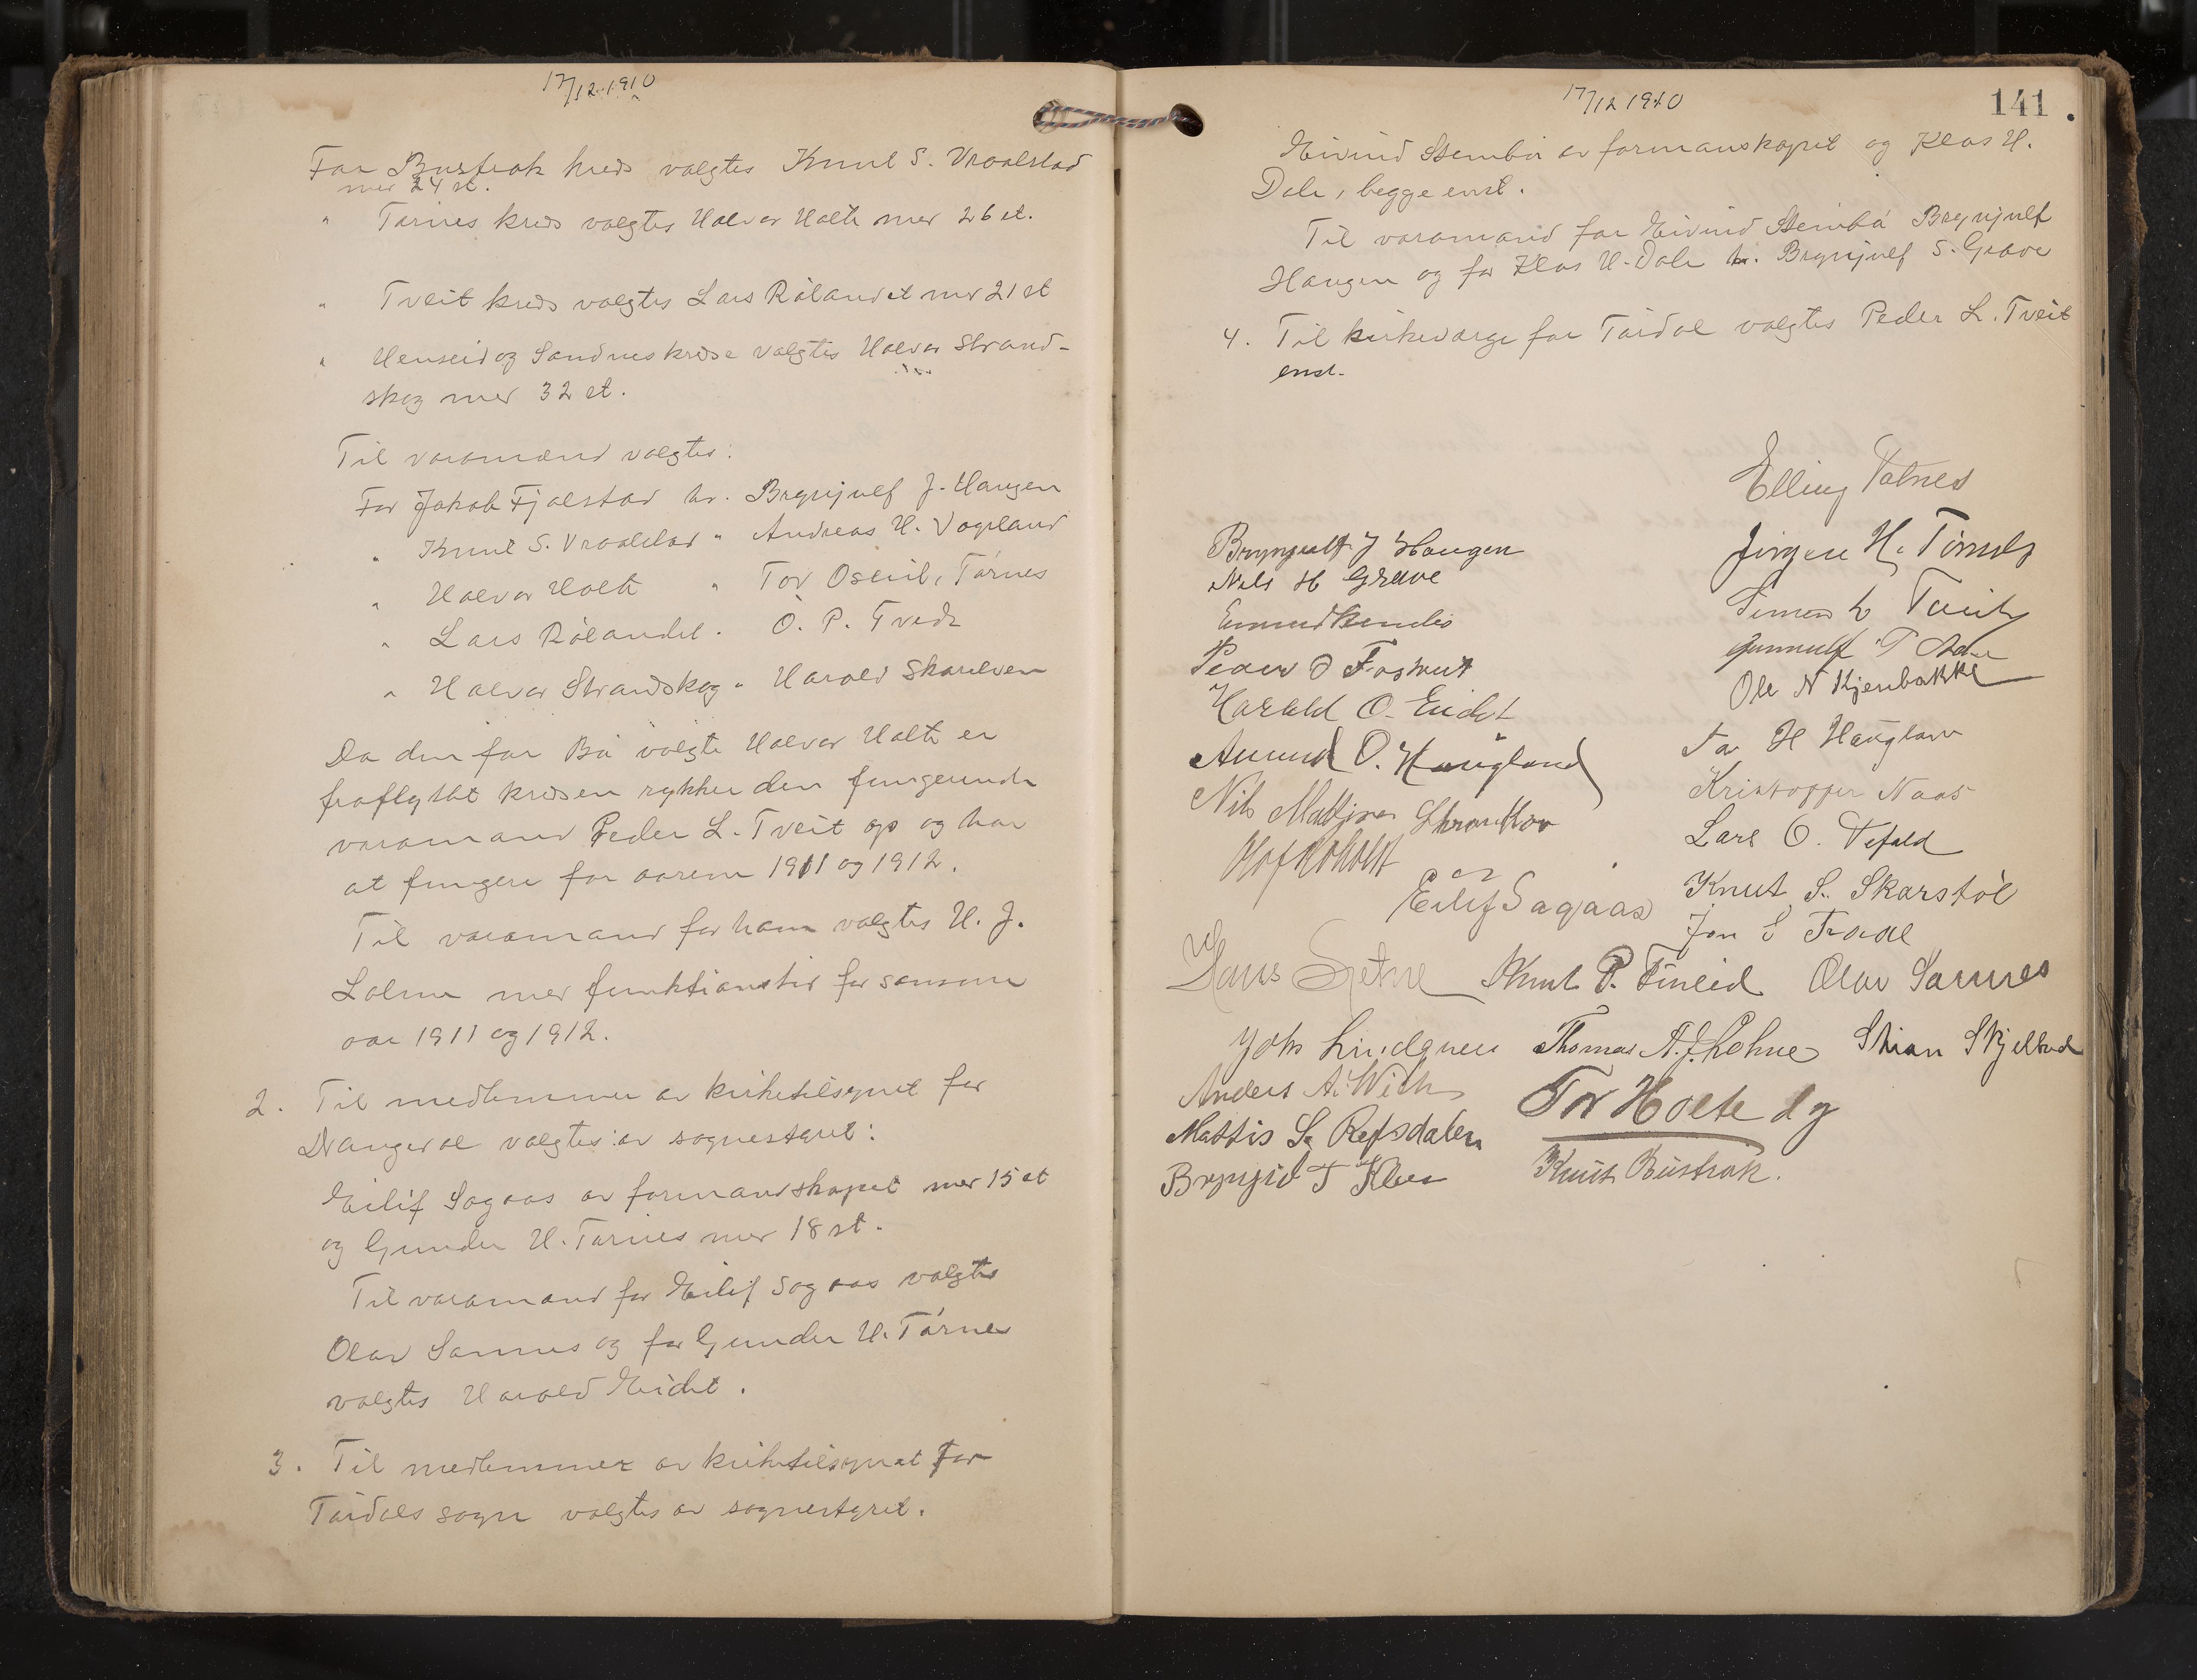 17/12 1910
For Busfrak kreds valgtes Knut S. Vraalstad
med 24 st.
" Tørnes kreds valgtes Halvor Holte med 26 st.
" Tveit kreds valgtes Lars Rølandet med 21 st
" Henseid og Sandnes kredse valgtes Halvor Strand-
skog med 32 st.
Til varamænd valgtes:
For Jakob Fjalestad hr. Brynjulf J. Haugen
" Knut S. Vraalstad " Andreas H. Vogsland
" Halvor Holte " Tov Oseid, Tørnes
" Lars Rølandet " O. P. Tvedt
" Halvor Strandskog " Harald Skarelven
Da den for Bø valgte Halvor Holte er
fraflyttet kredsen rykker den fungerende
varamand Peder L. Tveit op og har
at fungere for aarene 1911 og 1912.
Til varamand for ham valgtes H. J.
Lohne med funktionstid for samme
aar 1911 og 1912.
2. Til medlemmer av kirketilsynet for
Drangedal valgtes av sognestyret:
Eilif Sagaas av formandskapet med 15 st
og Gunder H. Tørnes med 18 st.
Til varamand for Eilif Sagaas valgtes
Olav Sannes og for Gunder H. Tørnes
valgtes Harald Eidet.
3. Til medlemmer av kirketilsynet for
Tørdals sogn valgtes av sognestyret.
17/12 1910
141.
Eivind Stenbø av formanskapet og Klas H.
Dale, begge enst.
Til varamand for Eivind Stenbø Brynjulf
Haugen og for Klas H. Dale hr. Brynjulf S. Grave
4. Til kirkeverge for Tørdal valgtes Peder L. Tveit
enst.
Elling Tolnes
Brynjulf J Haugen
Jørgen H.
Nils H Grave
Simen L Tveit
Gunnulf T
Peder O Fostveit
Ole N Kjenbakke
Harald O. Eidet
Tor H Haugland
Amund O. Haugland
Kristoffer Naas
Nils Mattjors
Lars O. Vefald
Olaf Roholdt
Eilif Sagaas
Knut S. Skarstøl
Jon E
Hans
Knut P. Fineid Olav Sannes
Johs Lindgren Thomas A. J. Lohne Stian Skjelbred
Anders A. Wich
Tor Holte dy
Mattis S. Refsdalen
Brynjul T Klev
Knut Busfrak.